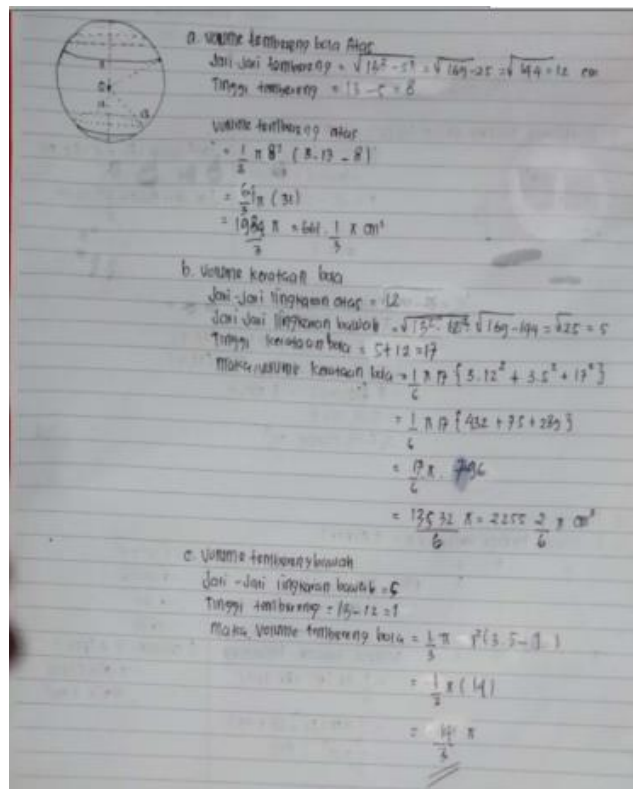 a. Volume tembereng bola Atas
Jari-Jari tembereng = √13² - 5² = √169 - 25 = √144 = 12 cm
Tinggi tembereng = 13 - 5 = 8
Volume tembereng atas
= 1/3 π 8² (3.13 - 8)
= 64/3 π (31)
= 1984/3 π = 661 1/3 π cm³
b. Volume kerataan bola
Jari-Jari lingkaran atas = 12
Jari Jari lingkaran bawah = √13² - 12² = √169 - 144 = √25 = 5
Tinggi kerataan bola = 5 + 12 = 17
Maka, volume keratacn bola = 1/6 π 17 {3.12² + 3.5² + 17²}
= 1/6 π 17 {432 + 75 + 289}
= 17/6 π . 796
= 13532/6 π = 2255 2/6 π cm³
c. Volume tembereng bawah
Jari-Jari lingkaran bawah = 5
Tinggi tembereng = 13 - 12 = 1
Maka, Volume tembereng bola = 1/3 π 1² (3.5 - 1)
= 1/3 π (14)
= 14/3 π